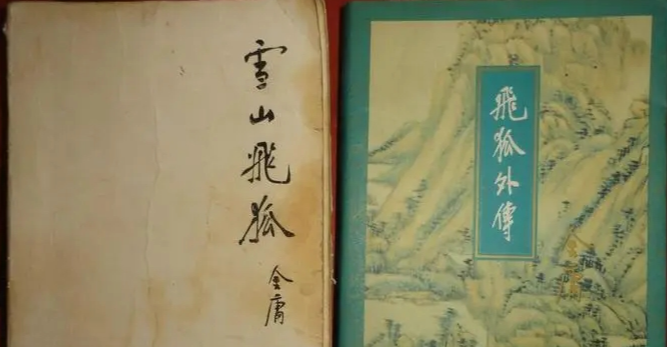 雪山飛狐
金庸
飛狐外傳